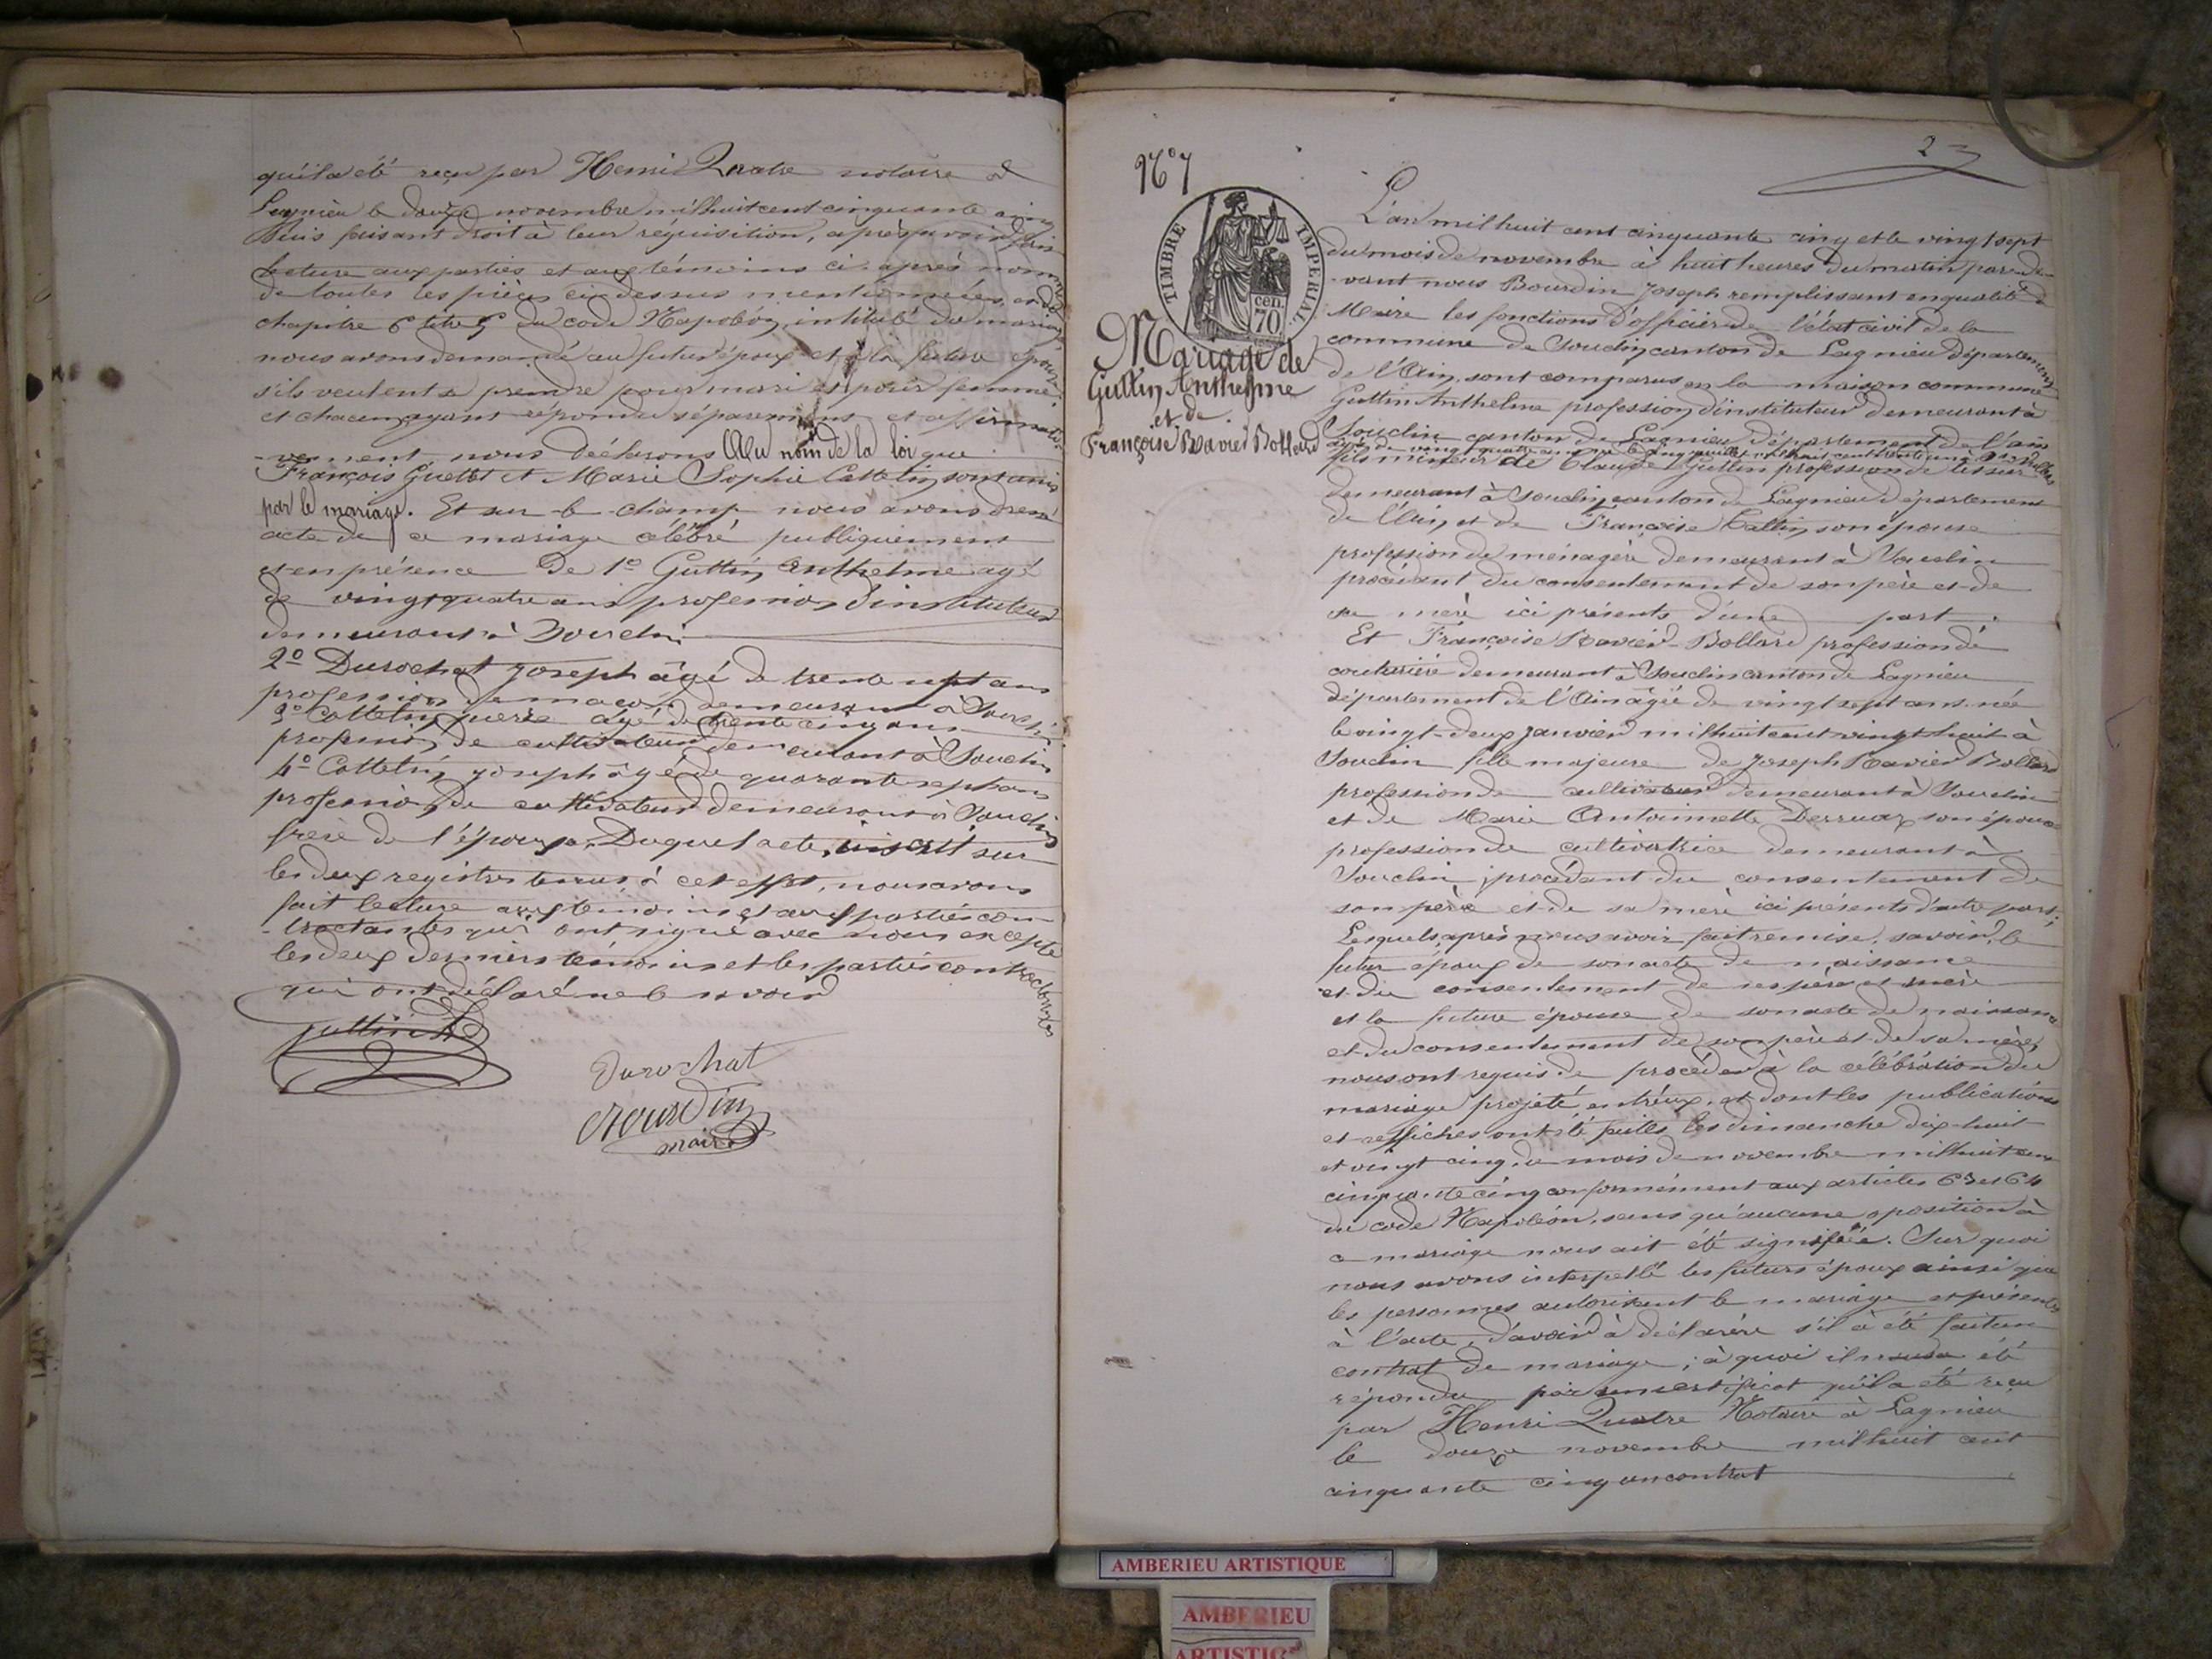 qu'il a été reçu par Henri Quatre notaire à
Lagnieu le douze novembre mil huit cent cinquante cinq
Puis faisant droit à leur réquisition, après avoir fait
lecture aux parties et aux témoins ci-après nommés
de toutes les pièces ci-dessus mentionnées, et du
chapitre 6 titre 5 du code Napoléon, intitulé du mariage,
nous avons demandé au futur époux et à la future épouse
s'ils veulent se prendre pour mari et pour femme
et chacun ayant répondu séparément et affirmati-
-vement, nous déclarons Au nom de la loi que
François Guettet et Marie Sophie Cottelin sont unis
par le mariage. Et sur le champ nous avons dressé
acte de ce mariage célébré publiquement
et en présence De 1º Guttin Anthelme agé
de vingt quatre ans profession d'instituteur
demeurant à Souclin
2º Durochat Joseph âgé de trente sept ans
profession de maçon demeurant à Souclin
3º Cottelin pierre âgé de trente cinq ans
profession de cultivateur demeurant à Souclin
4º Cottelin Joseph âgé de quarante sept ans
profession de cultivateur demeurant à Souclin
frère de l'épouse. Duquel acte, inscrit sur
les deux registres tenus à cet effet, nous avons
fait lecture aux témoins et aux parties con-
-tractantes qui ont signé avec nous excepté
les deux derniers témoins et les parties contractantes
qui ont déclaré ne le savoir
guttin
Durochat
Bourdin
maire
23
Nº 7
TIMBRE IMPERIAL
cen.
70
Mariage de
Guttin Anthelme
et de
Françoise Ravier Bollard
L'an mil huit cent cinquante cinq et le vingt sept
du mois de novembre à huit heures du matin par de-
-vant nous Bourdin Joseph remplissant en qualité de
Maire les fonctions d'officier de l'état civil de la
commune de Souclin canton de Lagnieu Département
de l'Ain, sont comparus en la maison commune
Guttin Anthelme profession d'instituteur demeurant à
Souclin canton de Lagnieu, département de l'ain
âgé de vingt quatre ans né le cinq juillet mil huit cent trente un à
fils mineur de Claude Guttin profession de tisseur
demeurant à Souclin canton de Lagnieu département
de l'Ain, et de Françoise Callin son épouse
profession de ménagère demeurant à Souclin
procédant du consentement de son père et de
sa mère ici présents d'une part.
Et Françoise Ravier-Bollard profession de
couturière demeurant à Souclin canton de Lagnieu
département de l'Ain âgée de vingt sept ans née
le vingt-deux janvier mil huit cent vingt huit à
Souclin fille majeure de Joseph Ravier Bollard
profession de cultivateur demeurant à Souclin
et de Marie Antoinette Derruaz son épouse
profession de cultivatrice demeurant à
Souclin, procédant du consentement de
son père et de sa mère ici présents d'autre part;
Lesquels, après nous avoir fait remise, savoir, le
futur époux de son acte de naissance
et du consentement de ses père et mère
et la future épouse de son acte de naissance
et du consentement de son père et de sa mère,
nous ont requis de procéder à la célébration du
mariage projeté entr'eux, et dont les publications
et affiches ont été faites les dimanche dix-huit
et vingt cinq du mois de novembre mil huit cent
cinquante cinq conformément aux articles 63 et 64
du code Napoléon, sans qu'aucune oposition à
ce mariage nous ait été signifiée. Sur quoi
nous avons interpellé les futurs époux ainsi que
les personnes autorisant le mariage et présentes
à l'acte, d'avoir à déclarere s'il a été fait un
contrat de mariage; à quoi il nous a été
répondu par un certificat qu'il a été reçu
par Henri Quatre Notaire à Lagnieu
le douze novembre mil huit cent
cinquante cinq un contrat
AMBERIEU ARTISTIQUE
AMBERIEU
ARTISTIQ